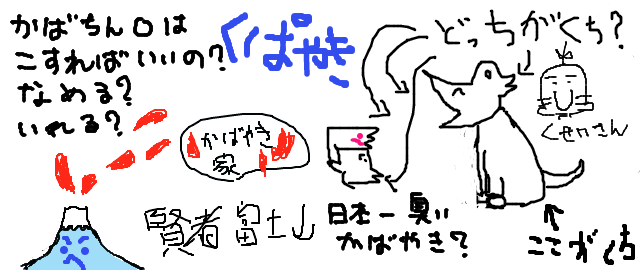 かばちん口は
こすればいいの?
なめる?
いれる?
くぱやき
どっちがくち?
くせいさん
かばやき
家
賢者 富士山
日本一臭い
かばやき?
ここがく占